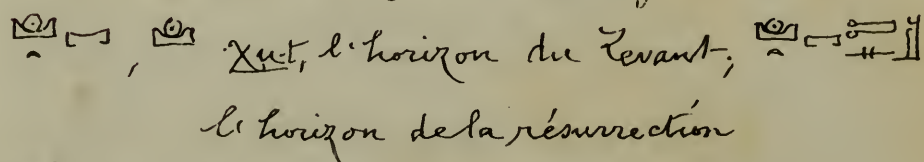 𓈌𓏏𓉐, 𓈌 χut, l'horizon du Levant;
l'horizon de la résurrection